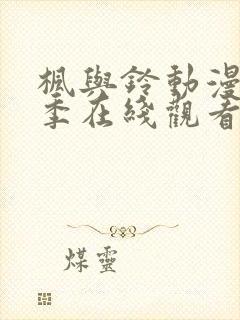 楓與鈴動漫
季在綫觀看
煤靈